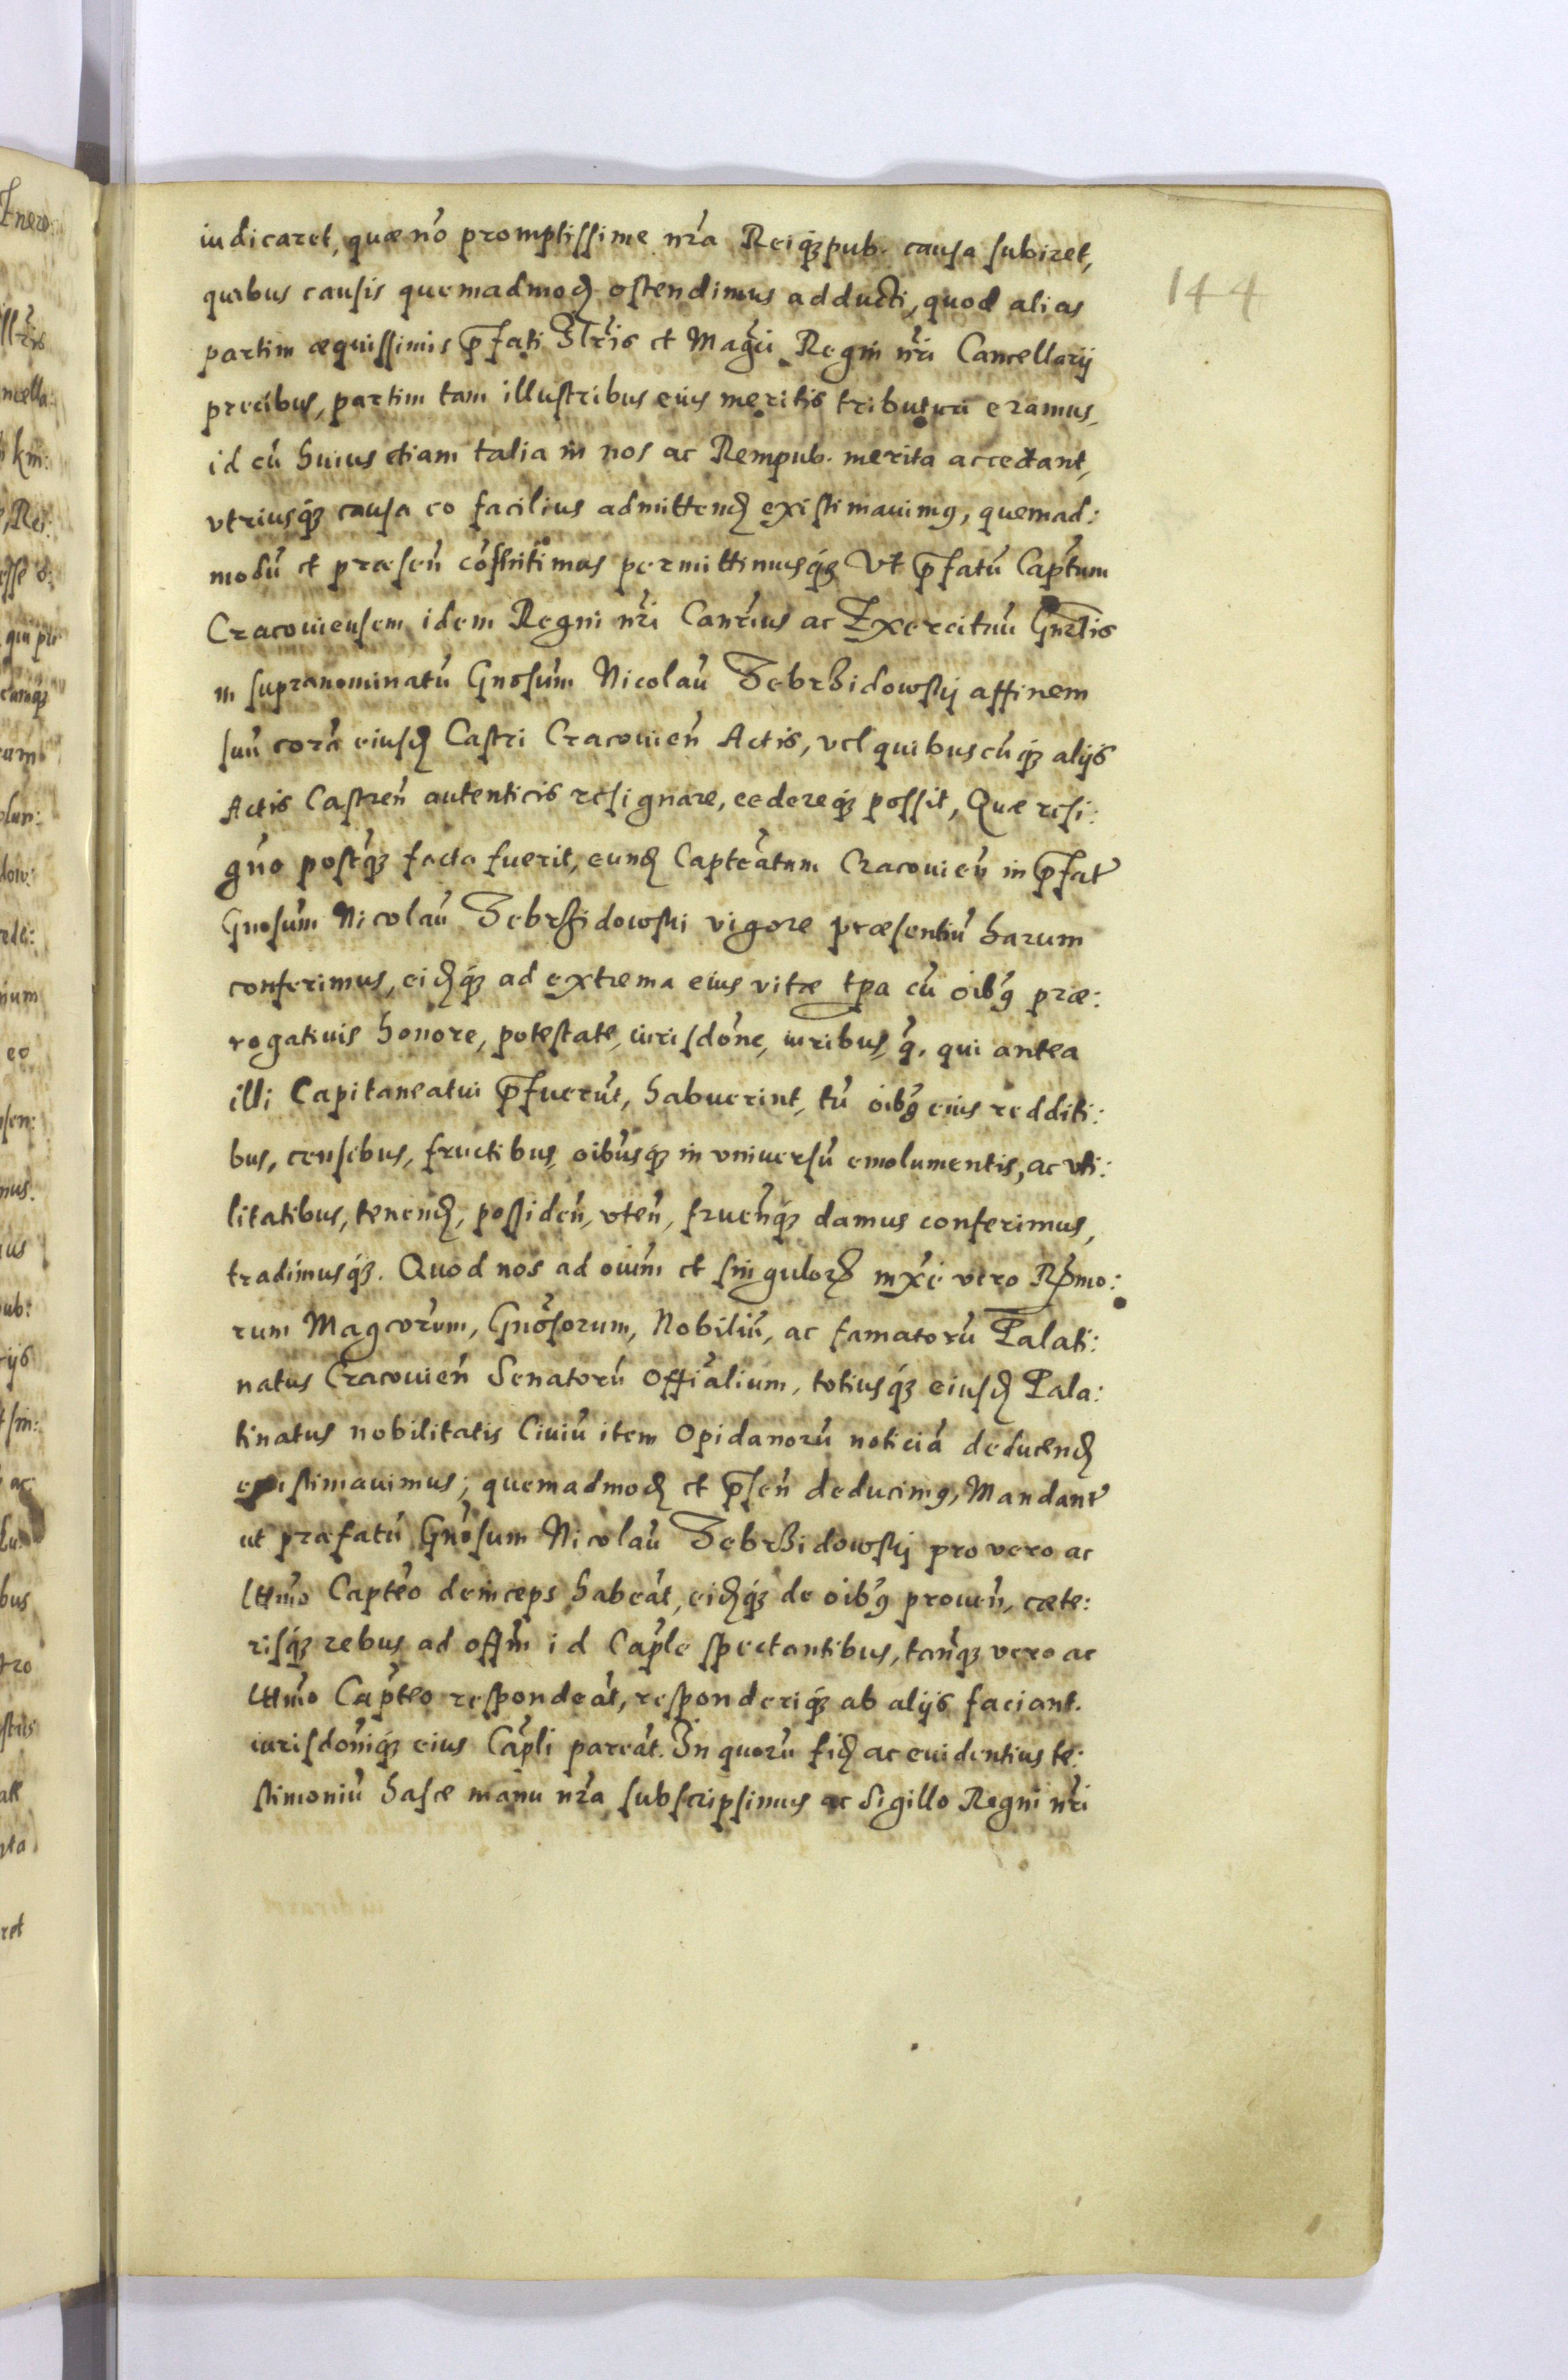 iudicaret, quæ nõ promptissime nr̃a Reiq́ꝫ pub. causa subiret,
quibus causis quemadmoď ostendimus adducti, quod alias
partim æquissimis p̃fati Illr̃is et Mag̃ci Regni nr̃i Cancellarij
precibus, partim tam illustribus eius meritis tributuri eramus,
id cũ huius etiam talia in nos ac Rempub. merita accedant,
vtriusq́ꝫ causa eo facilius admittenď existimauimꝰ, quemad:
modũ et præseñ cõsentimus permittimusq́ꝫ Vt p̃fatũ Cap̃tum
Cracouiensem idem Regni nr̃i Canr̃ius ac Exercituũ Gnr̃lis
in supranominatũ Gnõsum Nicolaũ Zebrzidowskj affinem
suũ corã eiusď Castri Cracouieñ Actis, vel quibuscũq́ꝫ alijs
Actis Castreñ autenticis resignare, cedereq́ꝫ possit, Quæ resi:
gño postq́ꝫ facta fuerit, eunď Capteãtum Cracouieñ in p̃fat̃
Gnosũm Nicolaũ Zebrzidowski vigore præsentiũ harum
conferimus, eiďq́ꝫ ad extrema eius vitæ tp̃a cũ oĩbꝰ præ:
rogatiuis honore, potestate, iurisdõne, iuribus, q̃. qui antea
illi Capitaneatui p̃fuerũt, habuerint, tũ oĩbꝰ eius redditi:
bus, censibus, fructibus, oĩbusq́ꝫ in vniuersũ emolumentis, ac vti:
litatibus, tenenď, possideñ, vteñ, frueñq́ꝫ damus conferimus,
tradimusq́ꝫ. Quod nos ad oĩum et singuloꝝ mx̃e vero Rp̃mo:
rum Magcõrum, Gnõsorum, Nobiliũ, ac famatorũ Palati:
natus Cracouieñ Senatorũ Offĩalium, totiusq́ꝫ eiusď Pala:
tinatus nobilitatis Ciuiũ item Opidanorũ noticiã deducenď
existimauimus; quemadmoď et p̃señ deducimꝰ, Mandant̃
ut præfatũ Gnõsum Nicolaũ Zebrzidowskj pro vero ac
lttm̃o Capteõ deinceps habeãt, eiďq́ꝫ de oĩbꝰ proueñ, cæte:
risq́ꝫ rebus ad offm̃ id Cap̃le spectantibus, tanq́ꝫ vero ac
lttm̃o Cap̃teo respondeãt, responderiq́ꝫ ab alijs faciant.
iurisdõniq́ꝫ eius Cãpli pareãt. In quorũ fiď ac euidentius te:
stimoniũ hasce manu nr̃a subscripsimus ac Sigillo Regni nr̃i
144